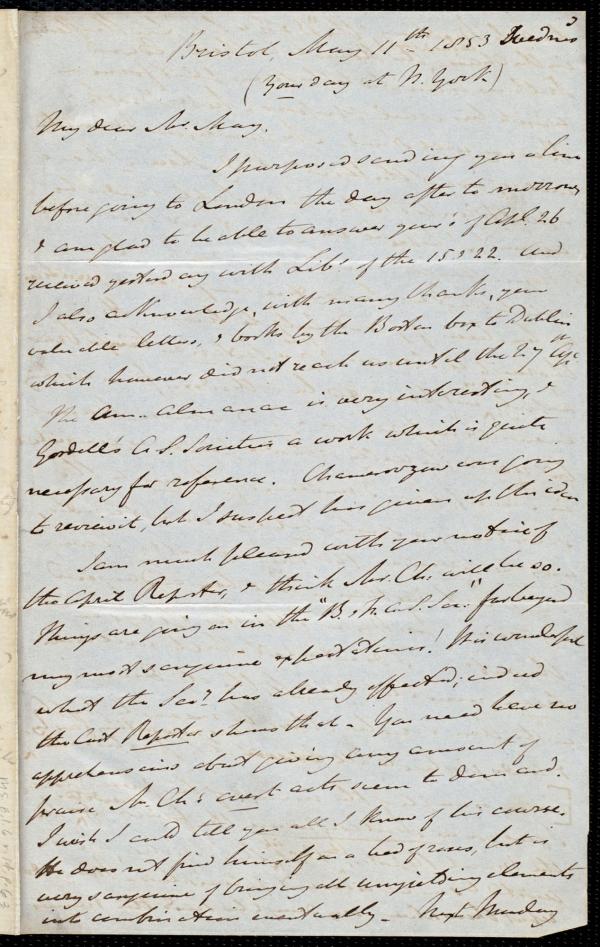 Bristol, May 11th 1853
(Your day at N. York)
My dear Mr. May.
I purposed sending you a line
before going to London the day after to morrow,
& am glad to be able to answer your's of Apl. 26
received yesterday with Libs. of the 15 & 22. And
I also acknowledge, with many thanks, your
valuable letters, & books by the Boston box to Dublin
which however did not reach us until the 27th
The Am. Almanac is very interesting, &
A S. Societies a work which is quite
necessary for reference. Chamerovzow was going
to review it, but I suspect has given up this idea
I am much pleased with your notice of
the April Reporter, & think Mr. Ch. will be so.
Things are going on in the "B. & F. A. S. Soc." far beyond
my most sanguine expectations! It is wonderful
what the Secy. has already effected; indeed
the last Reporter shows that. You need have no
apprehensions about giving any amount of
praise Mr. Ch's acts seem to demand.
I wish I could tell you all I know of his course.
He does not find himself on a bed of roses, but is
very sanguine of bringing all unyielding elements
into combination eventually. Next Monday